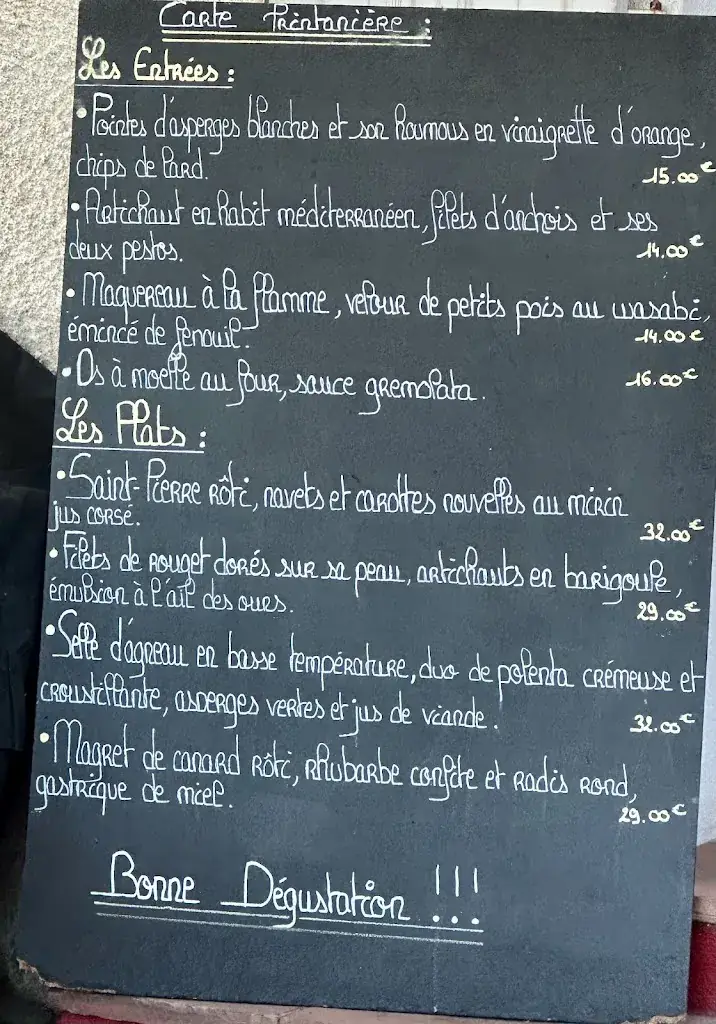 Carte Printanière :
Les Entrées :
• Pointes d'asperges blanches et son houmous en vinaigrette d'orange,
chips de lard. 15.00€
• Artichaut en habit méditerranéen, filets d'anchois et ses
deux pestos. 14.00€
• Maquereau à la flamme, velour de petits pois au wasabi,
émincé de fenouil. 14.00€
• Os à moelle au four, sauce gremolata. 16.00€
Les Plats :
• Saint-Pierre rôti, navets et carottes nouvelles au mirin
jus corsé. 32.00€
• Filets de rouget dorés sur sa peau, artichauts en barigoule,
émulsion à l'ail des ours. 29.00€
• Selle d'agneau en basse température, duo de polenta crémeuse et
croustillante, asperges vertes et jus de viande. 32.00€
• Magret de canard rôti, rhubarbe confite et radis rond,
gastrique de miel. 29.00€
Bonne Dégustation !!!